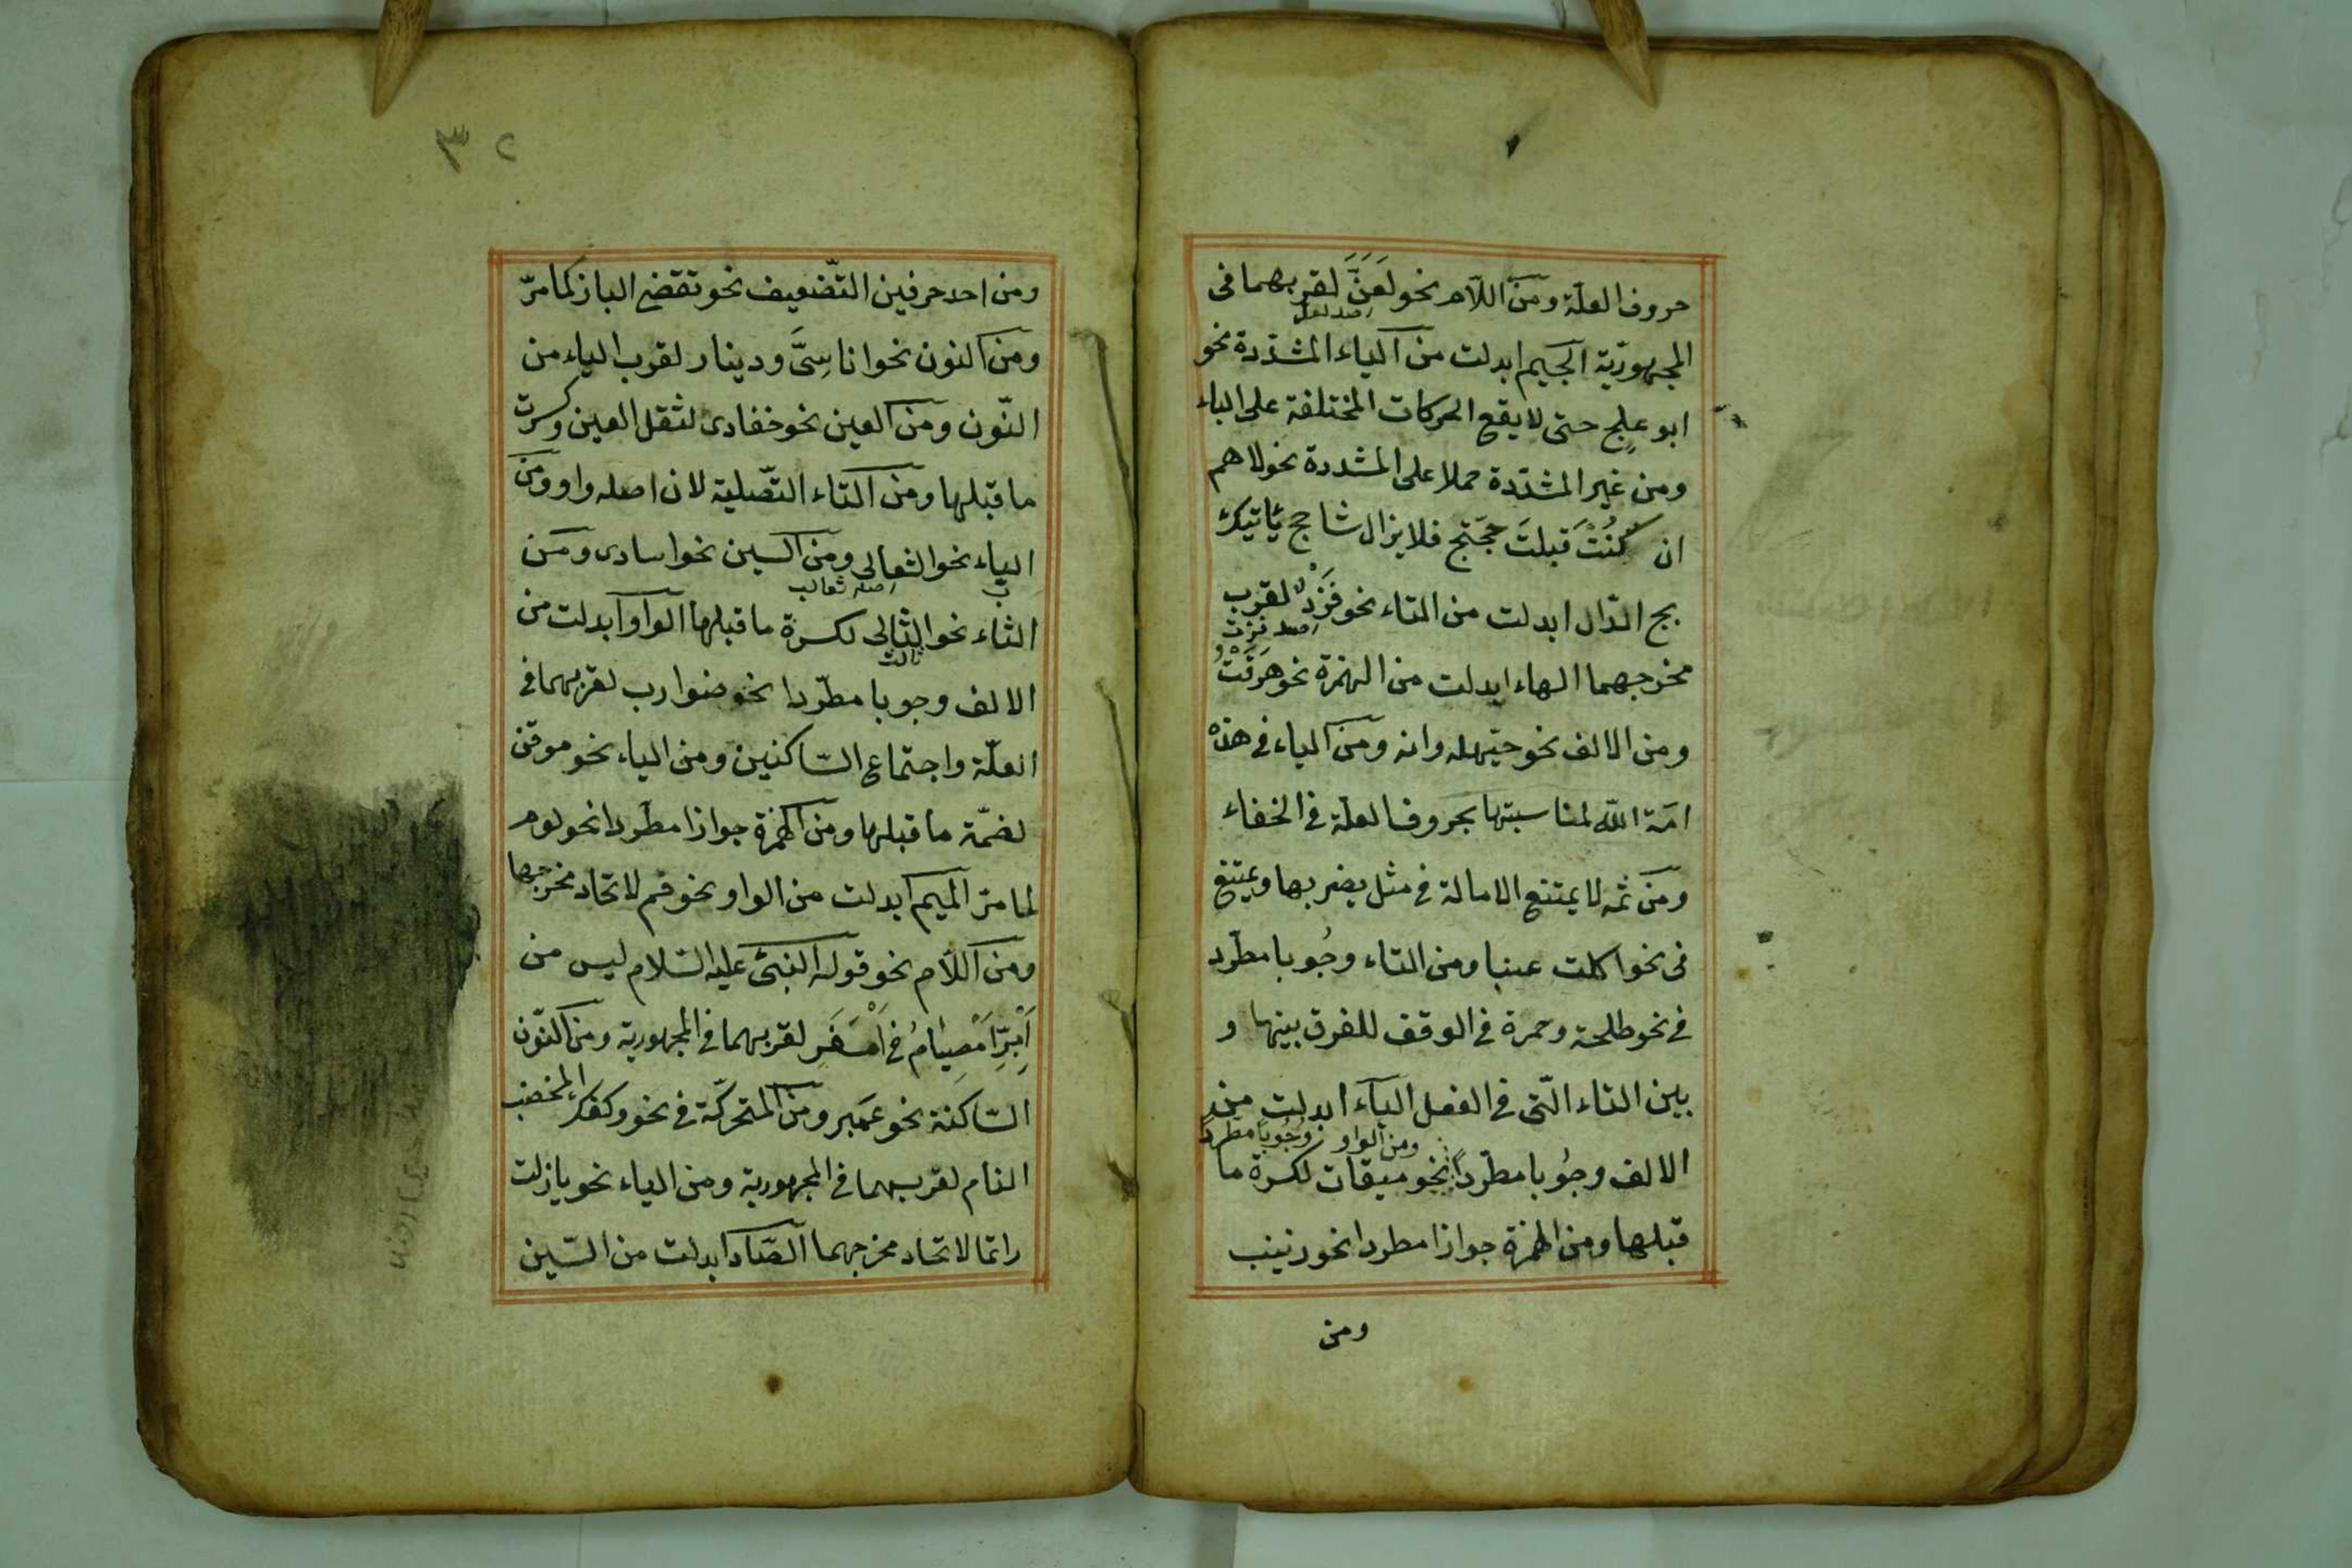 حروف العلّة ومن اللّام نحو لَعَنَّ لقربهما فى
اصله لعل
المجهوريّة الجيم ابدلت من الياء المشدّدة نحو
ابو علجٍ حتى لا يقع الحركات المختلفة على الياء
ومن غير المشدّدة حملا على المشددة نحو لاهم
ان كُنْتَ قبلتَ حجّتج فلا يزال شاحج يأتيك
بج الدّال ابدلت من التاء نحو فَزْدُ لقرب
اصله فزت
مخرجهما الهاء ابدلت من الهمزة نحو هَرَقْتُ
ومن الالف نحو حيّهله وانه ومن الياء فى هذه
امة الله لمناسبتها بحروف العلة فى الخفاء
ومن ثمه لا يمتنع الامالة فى مثل يضربها ويمتنع
فى نحو اكلت عنبا ومن التاء وجُوبا مطّرد
فى نحو طلحة وحمزة فى الوقف للفرق بينها و
بين التاء الّتى فى الفعل الياء ابدلت من
ومن الواو وجُوبا مطردا
الالف وجُوبا مطّردًا نحو ميقات لكسرة ما
قبلها ومن الهمزة جوازا مطردا نحو زيب
ومن
٣٢
ومن احد حرفين التّضعيف نحو تقضى الباز كما مرّ
ومن النون نحو اناسِىَّ ودينار لقرب الياء من
النّون ومن العين نحو ضفادى لثقل العين وكسرت
ما قبلها ومن التاء التّصلية لان اصله واو ومن
الباء نحو الثعالى ومن السين نحو السادى ومن
ب اصله ثعالب
الثاء نحو الثالى لكسرة ما قبلها الواو ابدلت من
ثالث
الالف وجوبا مطّردا نحو ضوارب لقربهما فى
العلّة واجتماع السّاكنين ومن الياء نحو موقن
لضمّة ما قبلها ومن الهمزة جوازا مطّردا نحو لوم
لما مرّ الميم ابدلت من الواو نحو فم لاتحاد مخرجها
ومن اللّام نحو قوله النبىّ عليه السّلام ليس من
اَمْبِرِّ اَمْصِيَامُ فى اَمْسَفَرِ لقربهما فى المجهورية ومن النّون
السّاكنة نحو عمبر ومن المتحركّة فى نحو وكفك المخضب
النام لقربهما فى المجهورية ومن الياء نحو يازلت
راتما لاتحاد مخرجهما الصّاد ابدلت من السّين